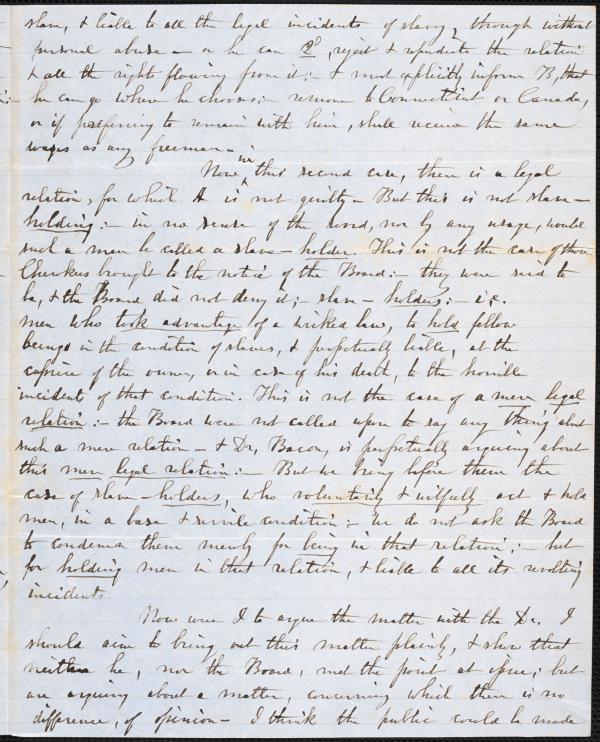 slave, & liable to all the legal incidents of slavery, though without
personal abuse — or he can 2d, reject & repudiate the relation
& all the rights flowing from it; — & most explicitly inform B, that
he can go where he chooses: — remove to Connecticut or Canada,
or if preferring to remain with him, shall receive the same
wages as any freeman —
Now in this second case, there is a legal
relation, for which A is not guilty — But this is not slave-
holding: — in no sense of the word, nor by any usage, would
such a man be called a slave-holder. This is not the case of those
Cherokees brought to the notice of the Board: — they were said to
be, & the Board did not deny it; — slave-holders: — i.e.
men who took advantage of a wicked law, to hold fellow
beings in the condition of slaves, & perpetually liable, at the
caprice of the owner, or in case of his death, to the horrible
incidents of that condition. This is not the case of a mere legal
relation: — the Board were not called upon to say any thing about
such a mere relation — & Dr. Bacon, is perpetually arguing about
this mere legal relation: — But we bring before them the
case of slave-holders, who voluntarily & wilfully act & hold
men, in a base & servile condition; — we do not ask the Board
to condemn them merely for being in that relation; — but
for holding men in that relation, & liable to all its revolting
incidents.
Now were I to argue the matter with the Dr. I
should aim to bring out this matter plainly, & show that
neither he, nor the Board, met the point at issue; but
are arguing about a matter, concerning which there is no
difference, of opinion — I think the public could be made